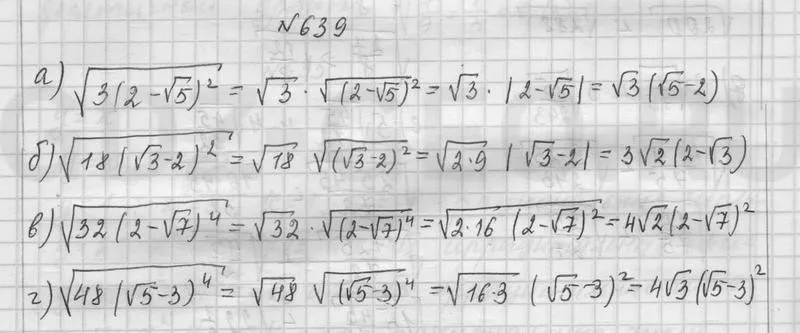 №639
а) √(3(2-√5)²) = √3 · √((2-√5)²) = √3 · |2-√5| = √3(√5-2)
б) √(18(√3-2)²) = √18 √((√3-2)²) = √(2·9) |√3-2| = 3√2(2-√3)
в) √(32(2-√7)⁴) = √32 · √((2-√7)⁴) = √(2·16 (2-√7)²) = 4√2(2-√7)²
г) √(48(√5-3)⁴) = √48 √((√5-3)⁴) = √(16·3) (√5-3)² = 4√3(√5-3)²